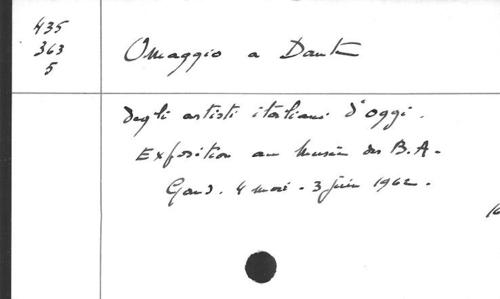 435
363
5
Omaggio a Dante
degli artisti italiani d'oggi.
Exposition au Musée des B.A-
Gand. 4 mai - 3 juin 1962.